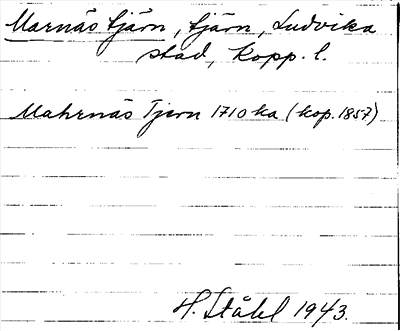 Marnästjärn, tjärn, Ludvika
stad, Kopp. l.
Mahrnäs Tjern 1710 ka (kop. 1857)
H. Ståhl 1943.